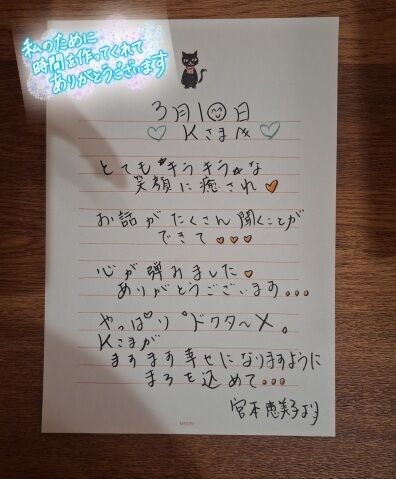 私のために
時間を作ってくれて
ありがとうございます
3月10日
Kさま
とてもキラキラな
笑顔に癒され
お話がたくさん聞くことが
できて
心が弾みました
ありがとうございます...
やっぱり"ドクタ〜X。
Kさまが
ますます幸せになりますように
まろを込めて...
宮本恵美子より
MIDORI